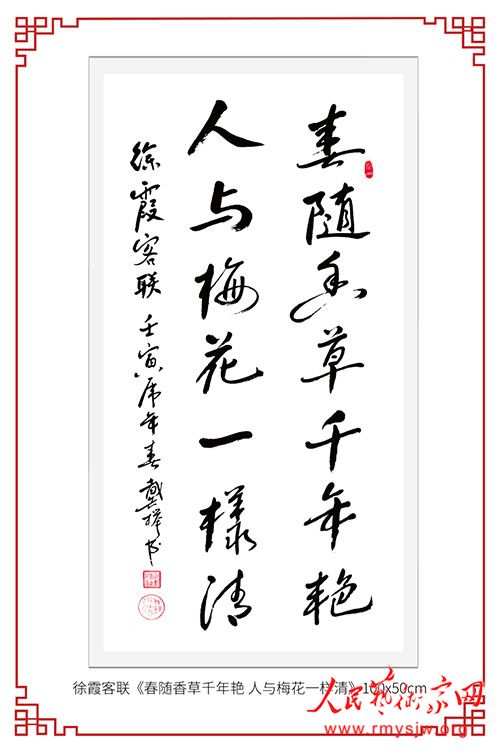 春随香草千年艳
人与梅花一樣清
徐霞客联 壬寅虎年春 龚择书
徐霞客联《春随香草千年艳 人与梅花一样清》100x50cm
人民艺術家网
www.rmysjw.org